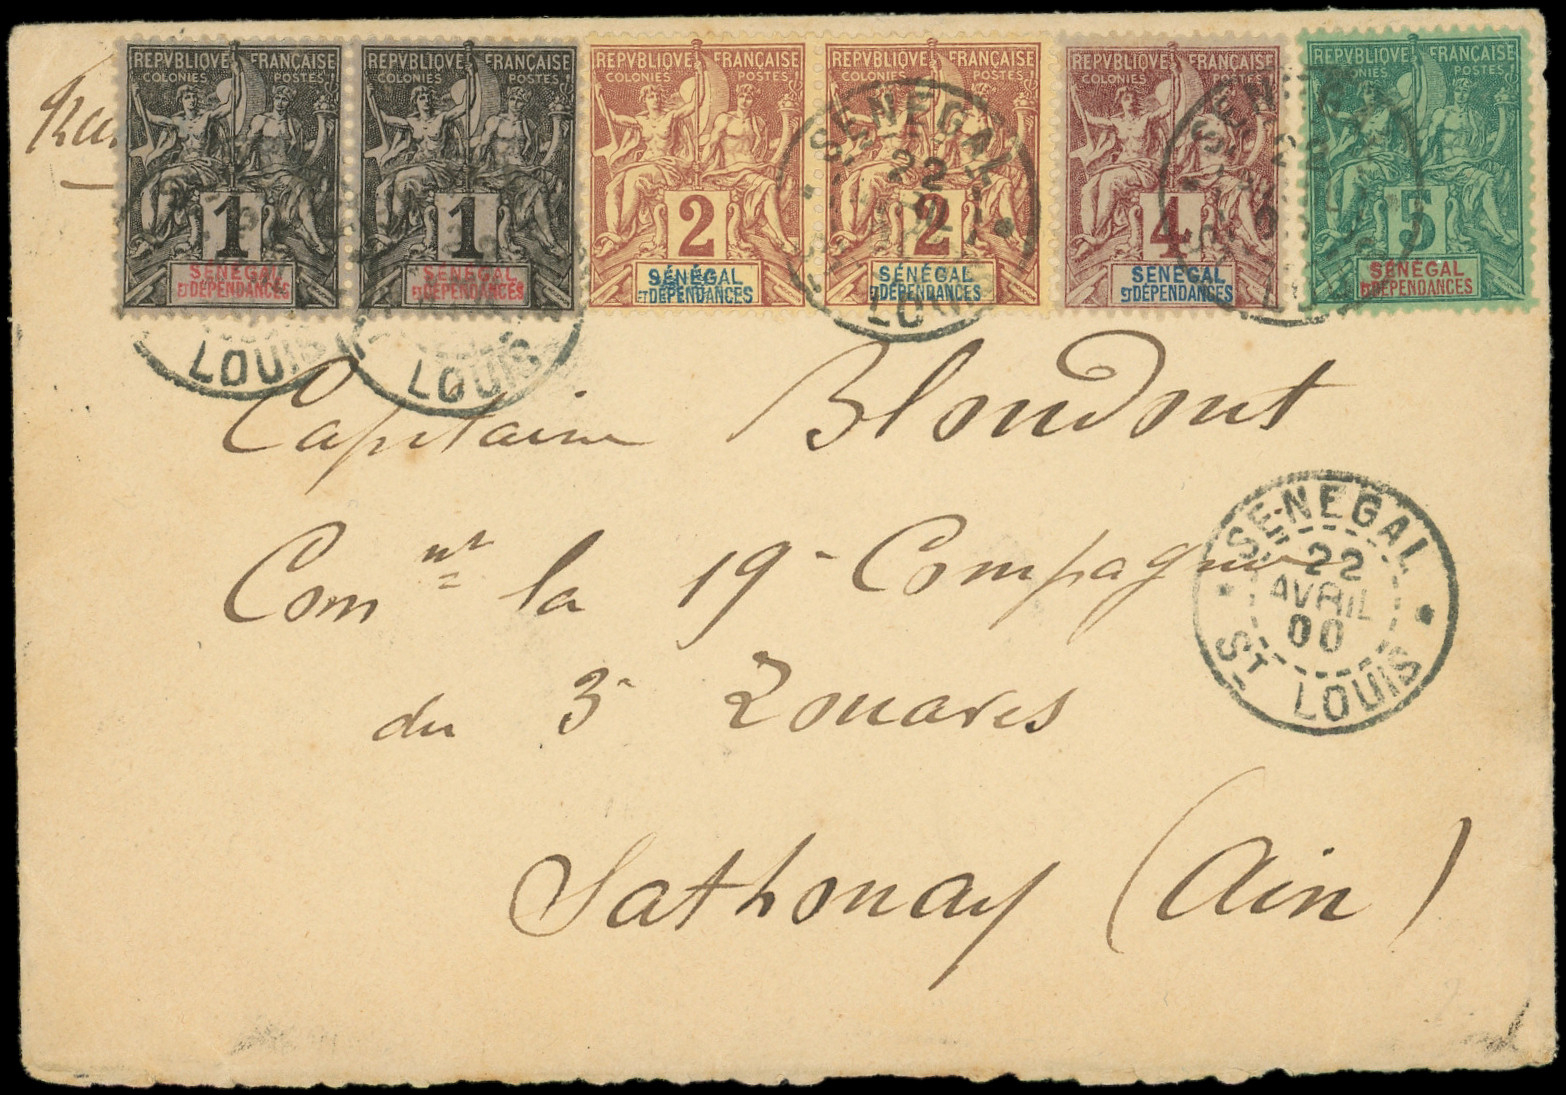 REPVBLIQUE FRANÇAISE
COLONIES POSTES
1
SÉNÉGAL
ET DÉPENDANCES
REPVBLIQUE FRANÇAISE
COLONIES POSTES
1
SÉNÉGAL
ET DÉPENDANCES
REPVBLIQUE FRANÇAISE
COLONIES POSTES
2
SÉNÉGAL
ET DÉPENDANCES
REPVBLIQUE FRANÇAISE
COLONIES POSTES
2
SÉNÉGAL
ET DÉPENDANCES
REPVBLIQUE FRANÇAISE
COLONIES POSTES
4
SÉNÉGAL
ET DÉPENDANCES
REPVBLIQUE FRANÇAISE
COLONIES POSTES
5
SÉNÉGAL
ET DÉPENDANCES
LOUIS
LOUIS
SENEGAL
22
LOUIS
Capitaine Blondont
Com nt la 19e Compagnie
du 3e Zouaves
Sathonay (Ain)
SENEGAL
22
AVRIL
00
ST LOUIS